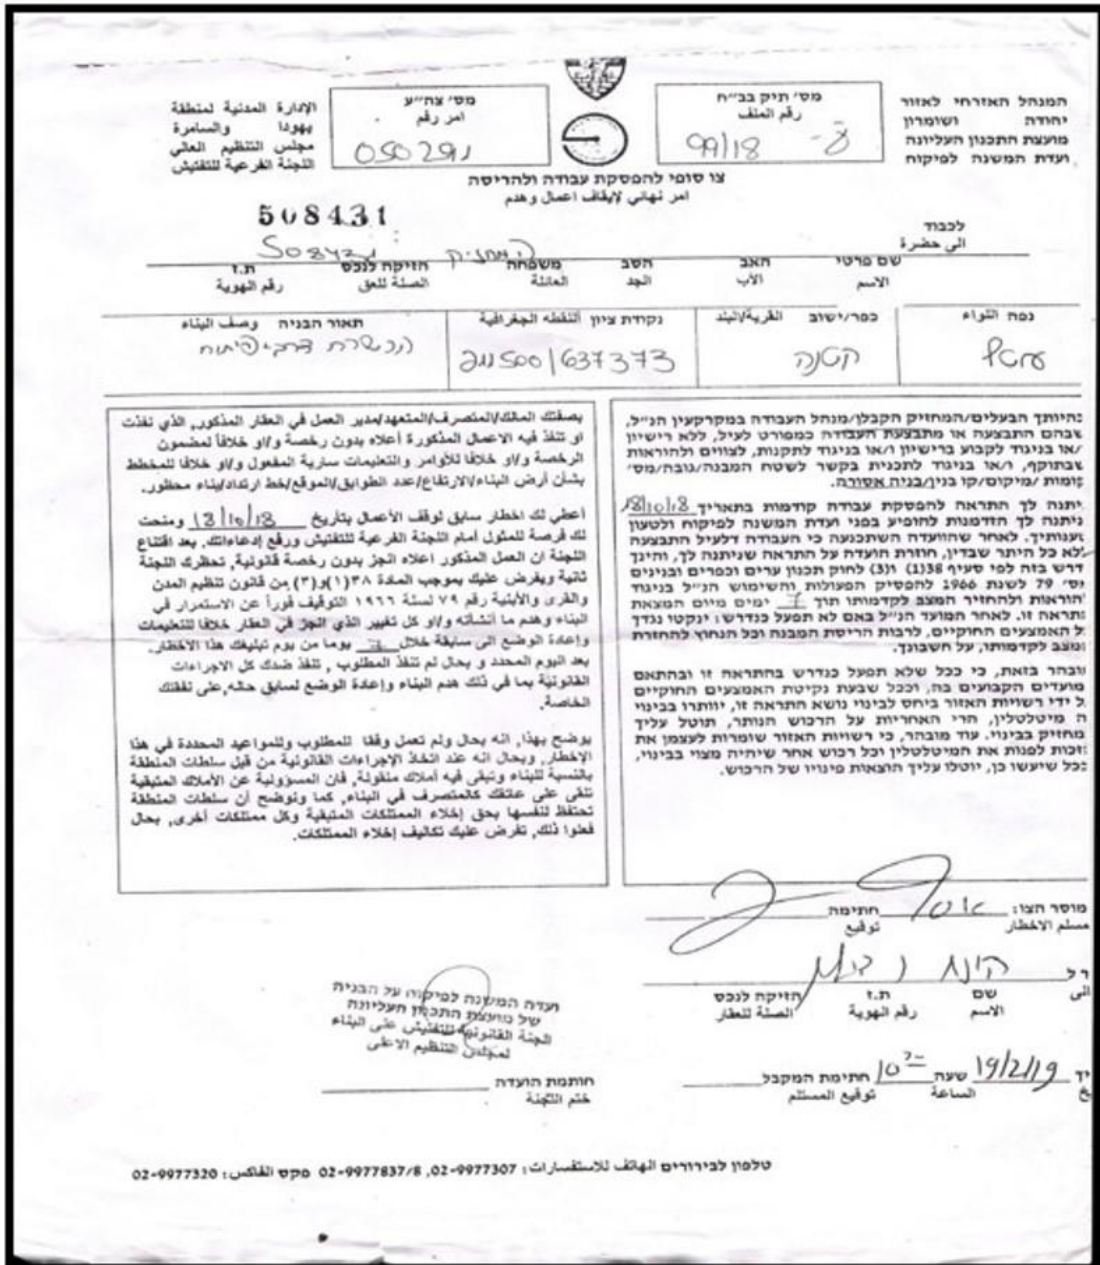 המנהל האזרחי לאזור
יהודה ושומרון
מועצת התכנון העליונה
ועדת המשנה לפיקוח
מס׳ תיק בב״ח
رقم الملف
99/18
מס׳ צה״ע
امر رقم
050291
الإدارة المدنية لمنطقة
يهودا والسامرة
مجلس التنظيم العالي
اللجنة الفرعية للتفتيش
צו סופי להפסקת עבודה ולהריסה
امر نهائي لإيقاف اعمال وهدم
508431
לכבוד
الى حضرة
המחזיק
שם פרטי האב הסב משפחה הזיקה לנכס ת.ז
الاسم الأب الجد العائلة الصلة للعق رقم الهوية
נפה اللواء
כפר/ישוב القرية/البلد
קטנה
נקודת ציון النقطه الجغرافية
211500/637373
תאור הבניה وصف البناء
הכשרת
נהיותך הבעלים/המחזיק הקבלן/מנהל העבודה במקרקעין הנ״ל,
שבהם התבצעה או מתבצעת העבודה כמפורט לעיל, ללא רישיון
/או בניגוד לקבוע ברישיון ו/או בניגוד לתקנות, לצווים ולהוראות
שבתוקף, ו/או בניגוד לתכנית בקשר לשטח המבנה/גובה/מס׳
קומות /מיקום/קו בנין/בניה אסורה.
ניתנה לך התראה להפסקת עבודה קודמות בתאריך 18/10/18
ניתנה לך הזדמנות להופיע בפני ועדת המשנה לפיקוח ולטעון
טענותיך. לאחר שהוועדה השתכנעה כי העבודה דלעיל התבצעה
ללא כל היתר שבדין, חוזרת הועדה על התראה שניתנה לך, והינך
נדרש בזה לפי סעיף 38(1) ו(3) לחוק תכנון ערים וכפרים ובנינים
מס׳ 79 לשנת 1966 להפסיק הפעולות והשימוש הנ״ל בניגוד
להוראות ולהחזיר המצב לקדמותו תוך 7 ימים מיום המצאת
התראה זו. לאחר המועד הנ״ל באם לא תפעל כנדרש: ינקטו נגדך
כל האמצעים החוקיים, לרבות הריסת המבנה וכל הנחוץ להחזרת
המצב לקדמותו, על חשבונך.
מובהר בזאת, כי ככל שלא תפעל כנדרש בהתראה זו ובהתאם
למועדים הקבועים בה, וככל שבעת נקיטת האמצעים החוקיים
על ידי רשויות האזור ביחס לבינוי נושא התראה זו, יוותרו בבינוי
זה מיטלטלין, הרי האחריות על הרכוש הנותר, תוטל עליך
כמחזיק בבינוי. עוד מובהר, כי רשויות האזור שומרות לעצמן את
הזכות לפנות את המיטלטלין וכל רכוש אחר שיהיה מצוי בבינוי,
ככל שיעשו כן, יוטלו עליך הוצאות פינויו של הרכוש.
بصفتك المالك/المتصرف/المتعهد/مدير العمل في العقار المذكور, الذي نفذت
او تنفذ فيه الاعمال المذكورة أعلاه بدون رخصة و/او خلافا لمضمون
الرخصة و/او خلافا للأوامر والتعليمات سارية المفعول و/او خلافا للمخطط
بشأن أرض البناء/الارتفاع/عدد الطوابق/الموقع/خط ارتداد/بناء محظور.
أعطي لك اخطار سابق لوقف الأعمال بتاريخ 18/10/18 ومنحت
لك فرصة للمثول أمام اللجنة الفرعية للتفتيش ورفع إدعاءاتك. بعد اقتناع
اللجنة ان العمل المذكور اعلاه انجز بدون رخصة قانونية, تحظرك اللجنة
ثانية ويفرض عليك بموجب المادة ٣٨(١)و(٣) من قانون تنظيم المدن
والقرى والأبنية رقم ٧٩ لسنة ١٩٦٦ التوقيف فوراً عن الاستمرار في
البناء وهدم ما أنشأته و/او كل تغيير الذي انجز في العقار خلافا للتعليمات
وإعادة الوضع الى سابقة خلال 7 يوما من يوم تبليغك هذا الاخطار.
بعد اليوم المحدد و بحال لم تنفذ المطلوب , تنفذ ضدك كل الاجراءات
القانونية بما في ذلك هدم البناء وإعادة الوضع لسابق حاله, على نفقتك
الخاصة.
يوضح بهذا, انه بحال ولم تعمل وفقا للمطلوب وللمواعيد المحددة في هذا
الإخطار, وبحال انه عند اتخاذ الإجراءات القانونية من قبل سلطات المنطقة
بالنسبة للبناء وتبقى فيه املاك منقولة, فان المسؤولية عن الأملاك المتبقية
تلقى على عاتقك كالمتصرف في البناء, كما ونوضح أن سلطات المنطقة
تحتفظ لنفسها بحق إخلاء الممتلكات المتبقية وكل ممتلكات أخرى, بحال
فعلوا ذلك, تفرض عليك تكاليف إخلاء الممتلكات.
מוסר הצו: חתימה
مسلم الاخطار توقيع
שם ת.ז הזיקה לנכס
الى الاسم رقم الهوية الصلة للعقار
19/2/19 שעה 10 חתימת המקבל
الساعة توقيع المستلم
ועדה המשנה לפיקוח על הבניה
של מועצת התכנון העליונה
الجنة القانونية للتفتيش على البناء
لمجلس التنظيم الاعلى
חותמת הועדה
ختم اللجنة
טלפון לבירורים الهاتف للاستفسارات: 02-9977307, 02-9977837/8 פקס الفاكس: 02-9977320